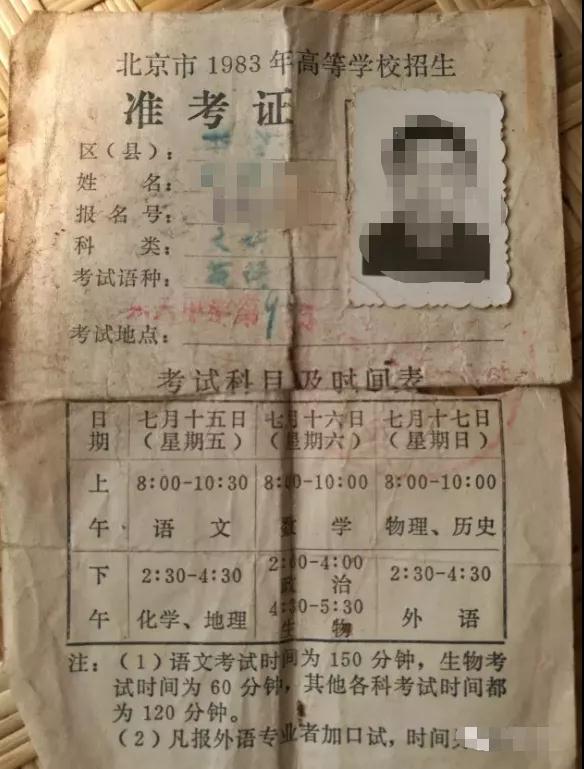 北京市1983年高等学校招生
准考证
区（县）：
姓 名：
报名号：
科 类：文科
考试语种：英语
第9
考试地点：
考试科目及时间表
日期 七月十五日（星期五） 七月十六日（星期六） 七月十七日（星期日）
上午 8:00-10:30 8:00-10:00 8:00-10:00
语 文 数 学 物理、历史
下午 2:30-4:30 2:00-4:00 2:30-4:30
政 治
化学、地理 4:30-5:30 外 语
生 物
注：（1）语文考试时间为150分钟，生物考
试时间为60分钟，其他各科考试时间都
为120分钟。
（2）凡报外语专业者加口试，时间